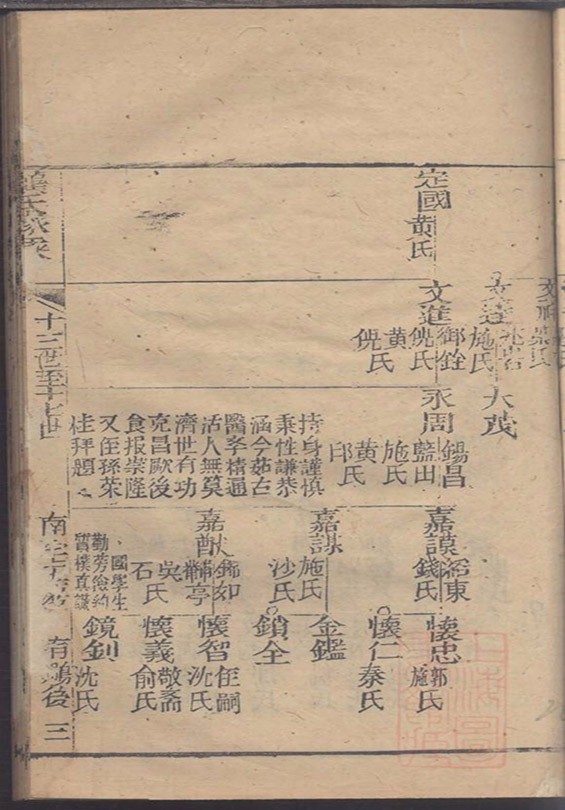 定國 黃氏
文進
鄉銓
倪氏
黃氏
倪氏
施氏
大茂
永周
錫昌
監出
施氏
黃氏
邱氏
持身謹慎
秉性謙恭
涵今茹古
醫學精通
活人無算
濟世有功
克昌厥後
食报崇隆
又侄孫荣
桂拜題
嘉謨
錢氏
嘉謀
施氏
沙氏
嘉猷
飾如
吳氏
石氏
國學生
勤勞儉約
懷忠
郭氏
施氏
懷仁
秦氏
金鑑
鎖全
懷智
侄嗣
沈氏
懷義
敬齋
俞氏
鏡釗
沈氏
十三世至十七世
有鵷後
三